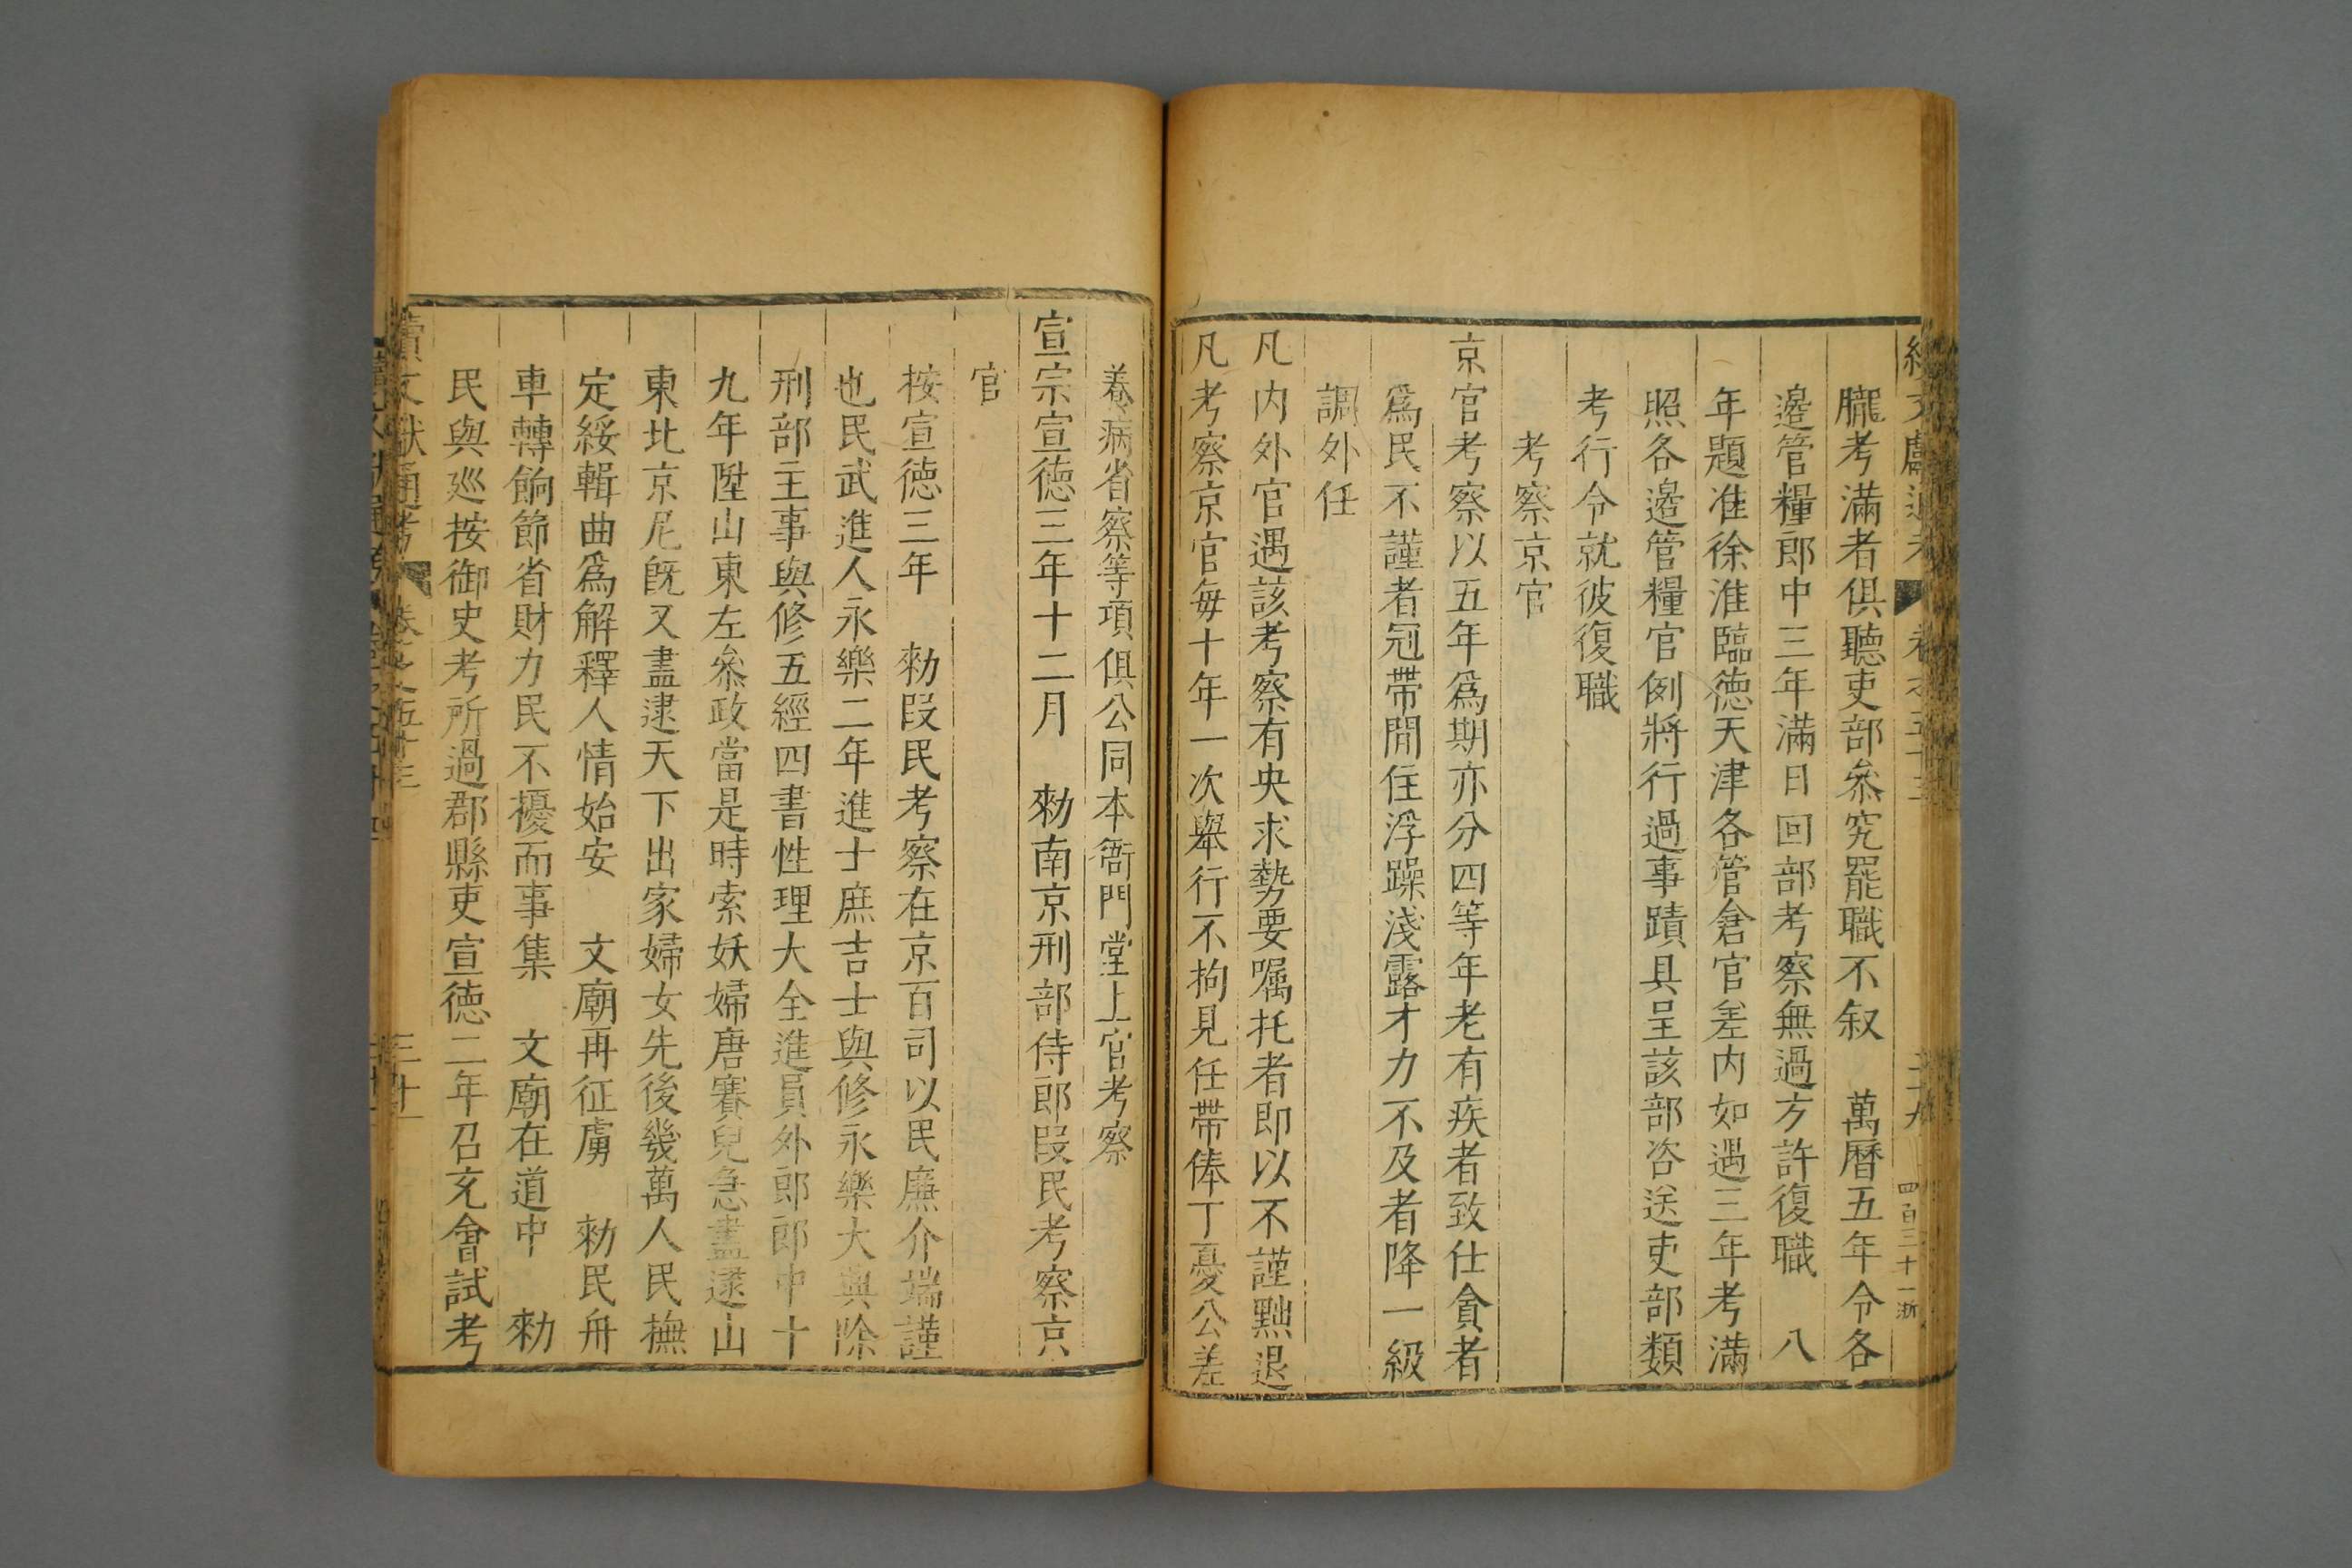 朧考滿者俱聽吏部叅究罷職不叙　萬曆五年令各
邊管糧郎中三年滿日回部考察無過方許復職　八
年題准徐淮臨德天津各管倉官差内如遇三年考滿
照各邊管糧官例將行過事蹟具呈該部咨送吏部類
考行令就彼復職
考察京官
京官考察以五年爲期亦分四等年老有疾者致仕貪者
爲民不謹者冠帶閒住浮躁淺露才力不及者降一級
調外任
凡内外官遇該考察有央求勢要嘱托者即以不謹黜退
凡考察京官每十年一次舉行不拘見任帶俸丁憂公差
養病省察等項俱公同本衙門堂上官考察
宣宗宣德三年十二月　勑南京刑部侍郎段民考察京
官
按宣德三年　勑段民考察在京百司以民廉介端謹
也民武進人永樂二年進士庶吉士與修永樂大典除
刑部主事與修五經四書性理大全進員外郎郎中十
九年陞山東左叅政當是時索妖婦唐賽兒急盡逮山
東北京尼既又盡逮天下出家婦女先後幾萬人民撫
定綏輯曲爲解釋人情始安　文廟再征虜　勑民舟
車轉餉節省財力民不擾而事集　文廟在道中　勑
民與巡按御史考所過郡縣吏宣德二年召充會試考
續文獻通考　卷之五十三　三十